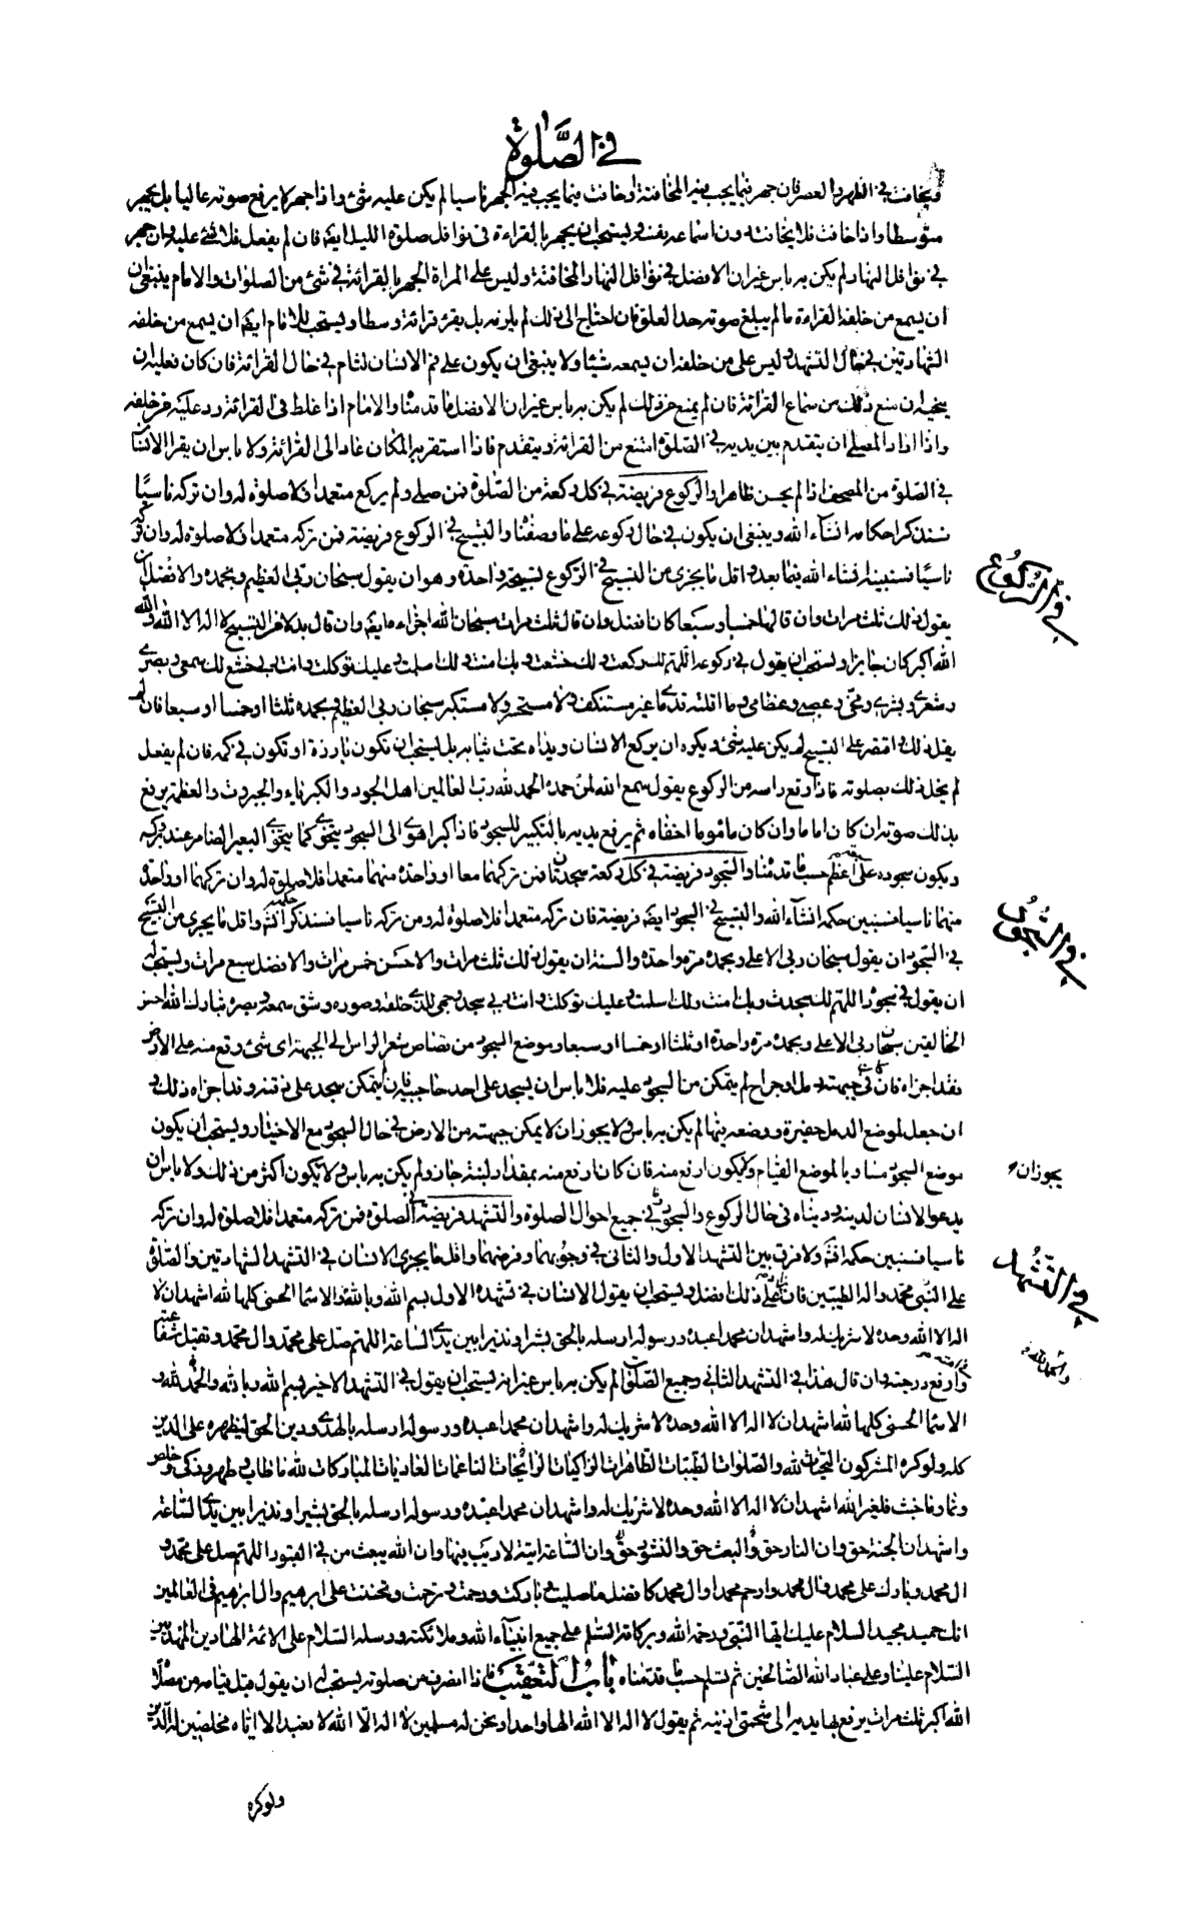 في الصَّلوة
ويخافت في الظهر والعصر فان جهر فيما يجب فيه المخافتة او خافت فيما يجب فيه الجهر ناسيا لم يكن عليه شئ واذا جهر لا يرفع صوته عاليا بل يجهر
متوسطا واذا خافت فلا يخافت دون اسماعه نفسه ويستحب ان يجهر بالقراءة في نوافل صلوة الليل ايضا فان لم يفعل فلا شئ عليه وان جهر
في نوافل النهار لم يكن به باس غير ان الافضل في نوافل النهار المخافتة وليس على المراة الجهر بالقرائة في شئ من الصلوات والامام ينبغي
ان يسمع من خلفه القراءة ما لم يبلغ صوته حد العلو فان احتاج الى ذلك لم يلزمه بل يقرء قرائة وسطا ويستحب للامام ايضا ان يسمع من خلفه
الشهادتين في حال التشهد وليس على من خلفه ان يسمعه شيئا ولا ينبغي ان يكون على فم الانسان لثام في حال القرائة فان كان فعليه ان
ينحيه ان منع ذلك من سماع القرائة فان لم يمنع من ذلك لم يكن به باس غير ان الافضل ما قدمناه والامام اذا غلط في القرائة رد عليه من خلفه
واذا اراد المصلي ان يتقدم بين يديه في الصلوة امتنع من القرائة ويتقدم فاذا استقر به المكان عاد الى القرائة ولا باس ان يقرا الانسان
في الصلوة من المصحف اذا لم يحسن ظاهرا والركوع فريضة في كل ركعة من الصلوة فمن صلى ولم يركع متعمدا فلا صلوة له وان تركه ناسيا
سنذكر احكامه انشاء الله وينبغي ان يكون في حال ركوعه على ما وصفناه والتسبيح في الركوع فريضة فمن تركه متعمدا فلا صلوة له وان تركه
ناسيا فسنبينه انشاء الله فيما بعد واقل ما يجزى من التسبيح في الركوع تسبيحة واحدة وهو ان يقول سبحان ربي العظيم وبحمده والافضل ان
يقول ذلك ثلث مرات وان قالها خمسا وسبعا كان افضل وان قال ثلث مرات سبحان الله اجزاه ايضا وان قال بدلا من التسبيح لا اله الا الله والله
الله اكبر كان جايزا ويستحب ان يقول في ركوعه اللهم لك ركعت ولك خشعت وبك امنت ولك اسلمت وعليك توكلت وانت ربي خشع لك سمعي وبصري
وشعري وبشري ومخي وعصبي وعظامي وما اقلته قدماي غير مستنكف ولا مستحسر ولا مستكبر سبحان ربي العظيم وبحمده ثلثا او خمسا او سبعا فان لم
يقل ذلك واقتصر على التسبيح لم يكن عليه شئ ويكره ان يركع الانسان ويداه تحت ثيابه بل يستحب ان تكون بارزة او تكون في كمه فان لم يفعل
لم يخل ذلك بصلوته فاذا رفع راسه من الركوع يقول سمع الله لمن حمده الحمد لله رب العالمين اهل الجود والكبرياء والجبروت والعظمة يرفع
بذلك صوته ان كان اماما وان كان ماموما اخفاه ثم يرفع يديه بالتكبير للسجود فاذا كبر اهوى الى السجود يتخوى كما يتخوى البعير الضامر عند بروكه
ويكون سجوده على سبعة اعظم حسب ما قدمناه والسجود فريضة في كل ركعة سجدتان فمن تركهما معا او واحدة منهما متعمدا فلا صلوة له وان تركهما او واحدة
منهما ناسيا فسنبين حكمه انشاء الله والتسبيح في السجود ايضا فريضة فان تركه متعمدا فلا صلوة له ومن تركه ناسيا فسنذكر حكمه انشاء الله واقل ما يجزى من التسبيح
في السجود ان يقول سبحان ربي الاعلى وبحمده مرة واحدة والسنة ان يقول ذلك ثلث مرات والاحسن خمس مرات والافضل سبع مرات ويستحب له
ان يقول في سجوده اللهم لك سجدت وبك امنت ولك اسلمت وعليك توكلت وانت ربي سجد وجهي للذي خلقه وصوره وشق سمعه وبصره تبارك الله احسن
الخالقين سبحان ربي الاعلى وبحمده مرة واحدة او ثلثا او خمسا او سبعا وموضع السجود من قصاص شعر الراس الى الجبهة اى شئ وقع منه على الارض
فقد اجزاه فان كان في جبهته دمل او جراح لم يتمكن من السجود عليه فلا باس ان يسجد على احد جانبيه فان لم يتمكن سجد على ذقنه وقد اجزاه ذلك و
ان جعل لموضع الدمل حفيرة ووضعه فيها لم يكن به باس ولا يجوز ان لا يمكن جبهته من الارض في حال السجود مع الاختيار ويستحب ان يكون
موضع السجود مساويا لموضع القيام ولا يكون ارفع منه فان كان ارفع منه بمقدار لبنة جاز ولم يكن به باس ولا يكون اكثر من ذلك ولا باس ان
يدعو الانسان لدينه ودنياه في حال الركوع والسجود وفي جميع احوال الصلوة والتشهد فريضة في الصلوة فمن تركه متعمدا فلا صلوة له وان تركه
ناسيا فسنبين حكمه انشاء الله ولا فرق بين التشهد الاول والثاني في وجوبهما وفرضهما واقل ما يجزى الانسان في التشهد الشهادتين والصلوة
على النبي محمد واله الطيبين فان زاد على ذلك كان افضل ويستحب ان يقول الانسان في تشهده الاول بسم الله وبالله والاسماء الحسنى كلها لله اشهد ان لا
اله الا الله وحده لا شريك له واشهد ان محمدا عبده ورسوله ارسله بالحق بشيرا ونذيرا بين يدي الساعة اللهم صل على محمد وال محمد وتقبل شفاعته
وارفع درجته وان قال هذا في التشهد الثاني وجميع الصلوات لم يكن به باس غير انه يستحب ان يقول في التشهد الاخير بسم الله وبالله والحمد لله و
الاسماء الحسنى كلها لله اشهد ان لا اله الا الله وحده لا شريك له واشهد ان محمدا عبده ورسوله ارسله بالهدى ودين الحق ليظهره على الدين
كله ولو كره المشركون التحيات لله والصلوات الطيبات الطاهرات الزاكيات الرائحات الناعمات الغاديات المباركات لله ما طاب وطهر وزكى وخلص
ونما وما خبث فلغير الله اشهد ان لا اله الا الله وحده لا شريك له واشهد ان محمدا عبده ورسوله ارسله بالحق بشيرا ونذيرا بين يدي الساعة
واشهد ان الجنة حق وان النار حق والبعث حق والنشور حق وان الساعة اتية لا ريب فيها وان الله يبعث من في القبور اللهم صل على محمد و
ال محمد وبارك على محمد وال محمد وارحم محمدا وال محمد كافضل ما صليت وباركت ورحمت وترحمت وتحننت على ابرهيم وال ابرهيم في العالمين
انك حميد مجيد السلام عليك ايها النبي ورحمة الله وبركاته السلام على جميع انبياء الله وملائكته ورسله السلام على الائمة الهادين المهديين
السلام علينا وعلى عباد الله الصالحين ثم تسلم حسب ما قدمناه باب التعقيب فاذا انصرف من صلوته يستحب له ان يقول قبل قيامه من مصلاه
الله اكبر ثلث مرات يرفع بها يديه الى شحمتى اذنيه ثم يقول لا اله الا الله الها واحدا ونحن له مسلمين لا اله الا الله لا نعبد الا اياه مخلصين له الدين
في الركوع
في السجود
يجوز ان
في التشهد
والحمد لله
ولو كره